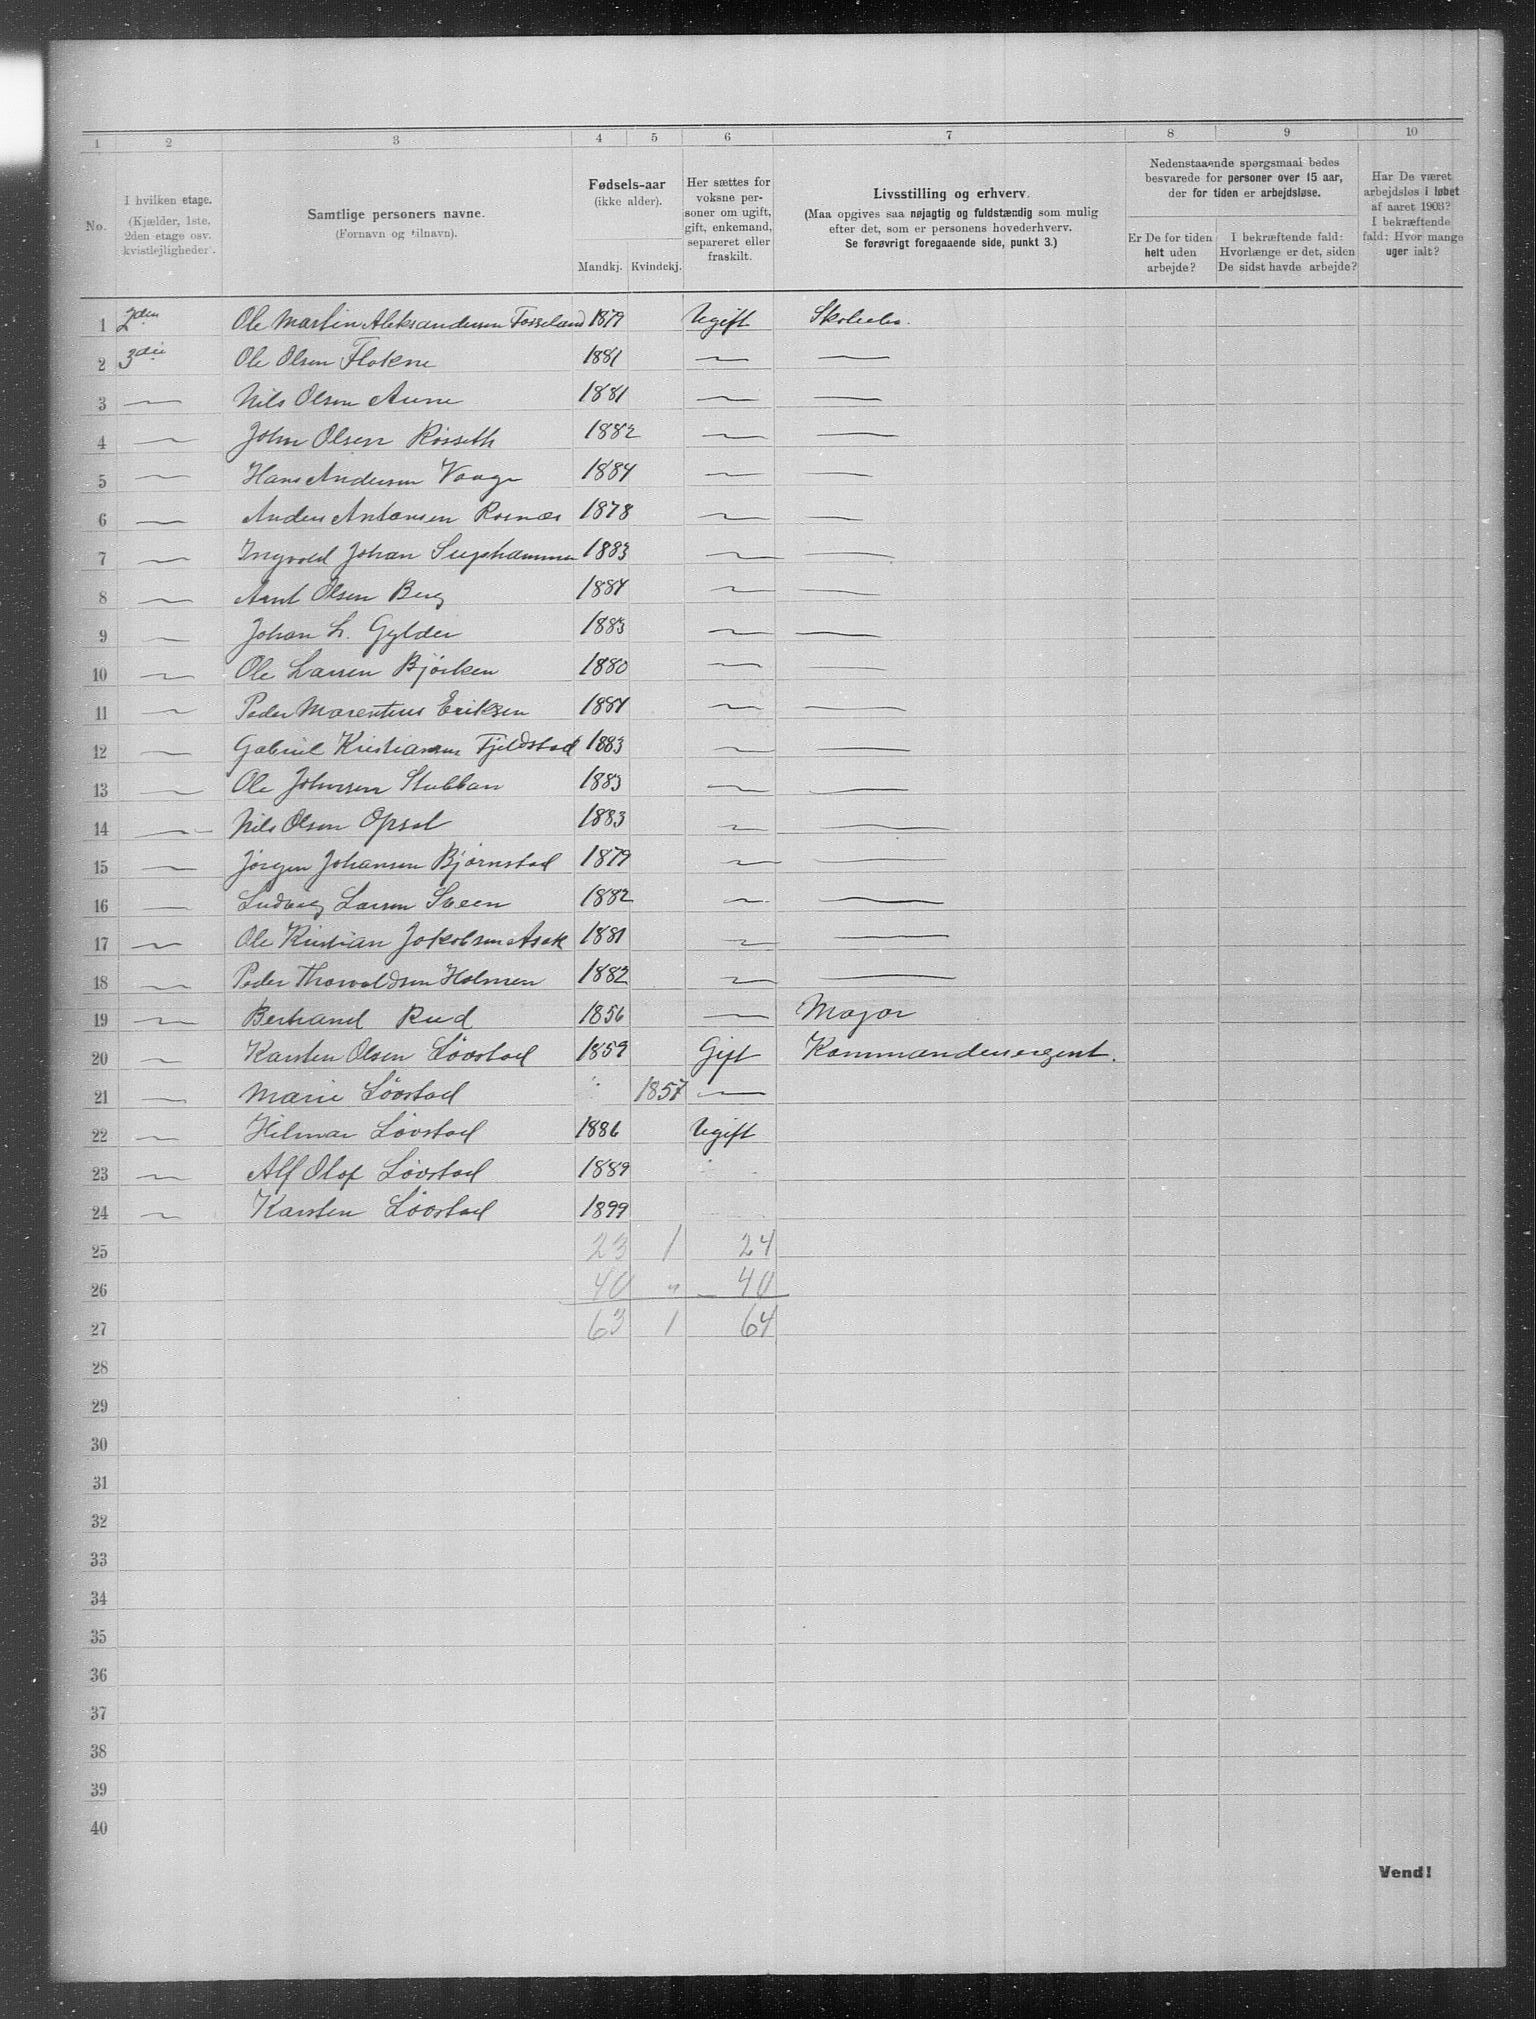 1 2 3 4 5 6 7 8 9 10
No.
I hvilken etage.
(Kjælder, 1ste.
2den etage osv.
kvistlejligheder).
Samtlige personers navne.
(Fornavn og tilnavn).
Fødsels-aar
(ikke alder).
Mandkj. Kvindekj.
Her sættes for
voksne per-
soner om ugift,
gift, enkemand,
separeret eller
fraskilt.
Livsstilling og erhverv.
(Maa opgives saa nøjagtig og fuldstændig som mulig
efter det, som er personens hovederhverv.
Se forøvrigt foregaaende side, punkt 3.)
Nedenstaaende spørgsmaal bedes
besvarede for personer over 15 aar,
der for tiden er arbejdsløse.
Er De for tiden
helt uden
arbejde?
I bekræftende fald:
Hvorlænge er det, siden
De sidst havde arbejde?
Har De været
arbejdsløs i løbet
af aaret 1903?
I bekræftende
fald: Hvor mange
uger ialt?
1 2den Ole Martin Aleksandersen Fosseland 1879 Ugift Skoleelev.
2 3die Ole Olsen Flokne 1881 — —
3 — Nils Olsen Aune 1881 — —
4 — John Olsen Rösseth 1882 — —
5 — Hans Andersen Vaage 1884 — —
6 — Anders Antonsen Rosnæs 1878 — —
7 — Ingvold Johan 1883 — —
8 — Arnt Olsen Berg 1884 — —
9 — Johan L. Gylder 1883 — —
10 — Ole Larsen Bjørken 1880 — —
11 — Peder Marentius Eriksen 1884 — —
12 — Gabriel Kristiansen Fjeldstad 1883 — —
13 — Ole Johnsen Stubban 1883 — —
14 — Nils Olsen Opsal 1883 — —
15 — Jörgen Johansen Bjørnstad 1879 — —
16 — Ludvig Larsen Sveen 1882 — —
17 — Ole Kristian Jakobsen Asak 1881 — —
18 — Peder Thorvaldsen Holmen 1882 — —
19 — Bertrand Rud 1856 — Major
20 — Karsten Olsen Lövstad 1859 Gift Kommandersergent.
21 — Marie Lövstad 1857 —
22 — Hilmar Lövstad 1886 Ugift
23 — Alf Olaf Lövstad 1889
24 — Karsten Lövstad 1899
25 23 1 24
26 40 " 40
27 63 1 64
28
29
30
31
32
33
34
35
36
37
38
39
40
Vend!